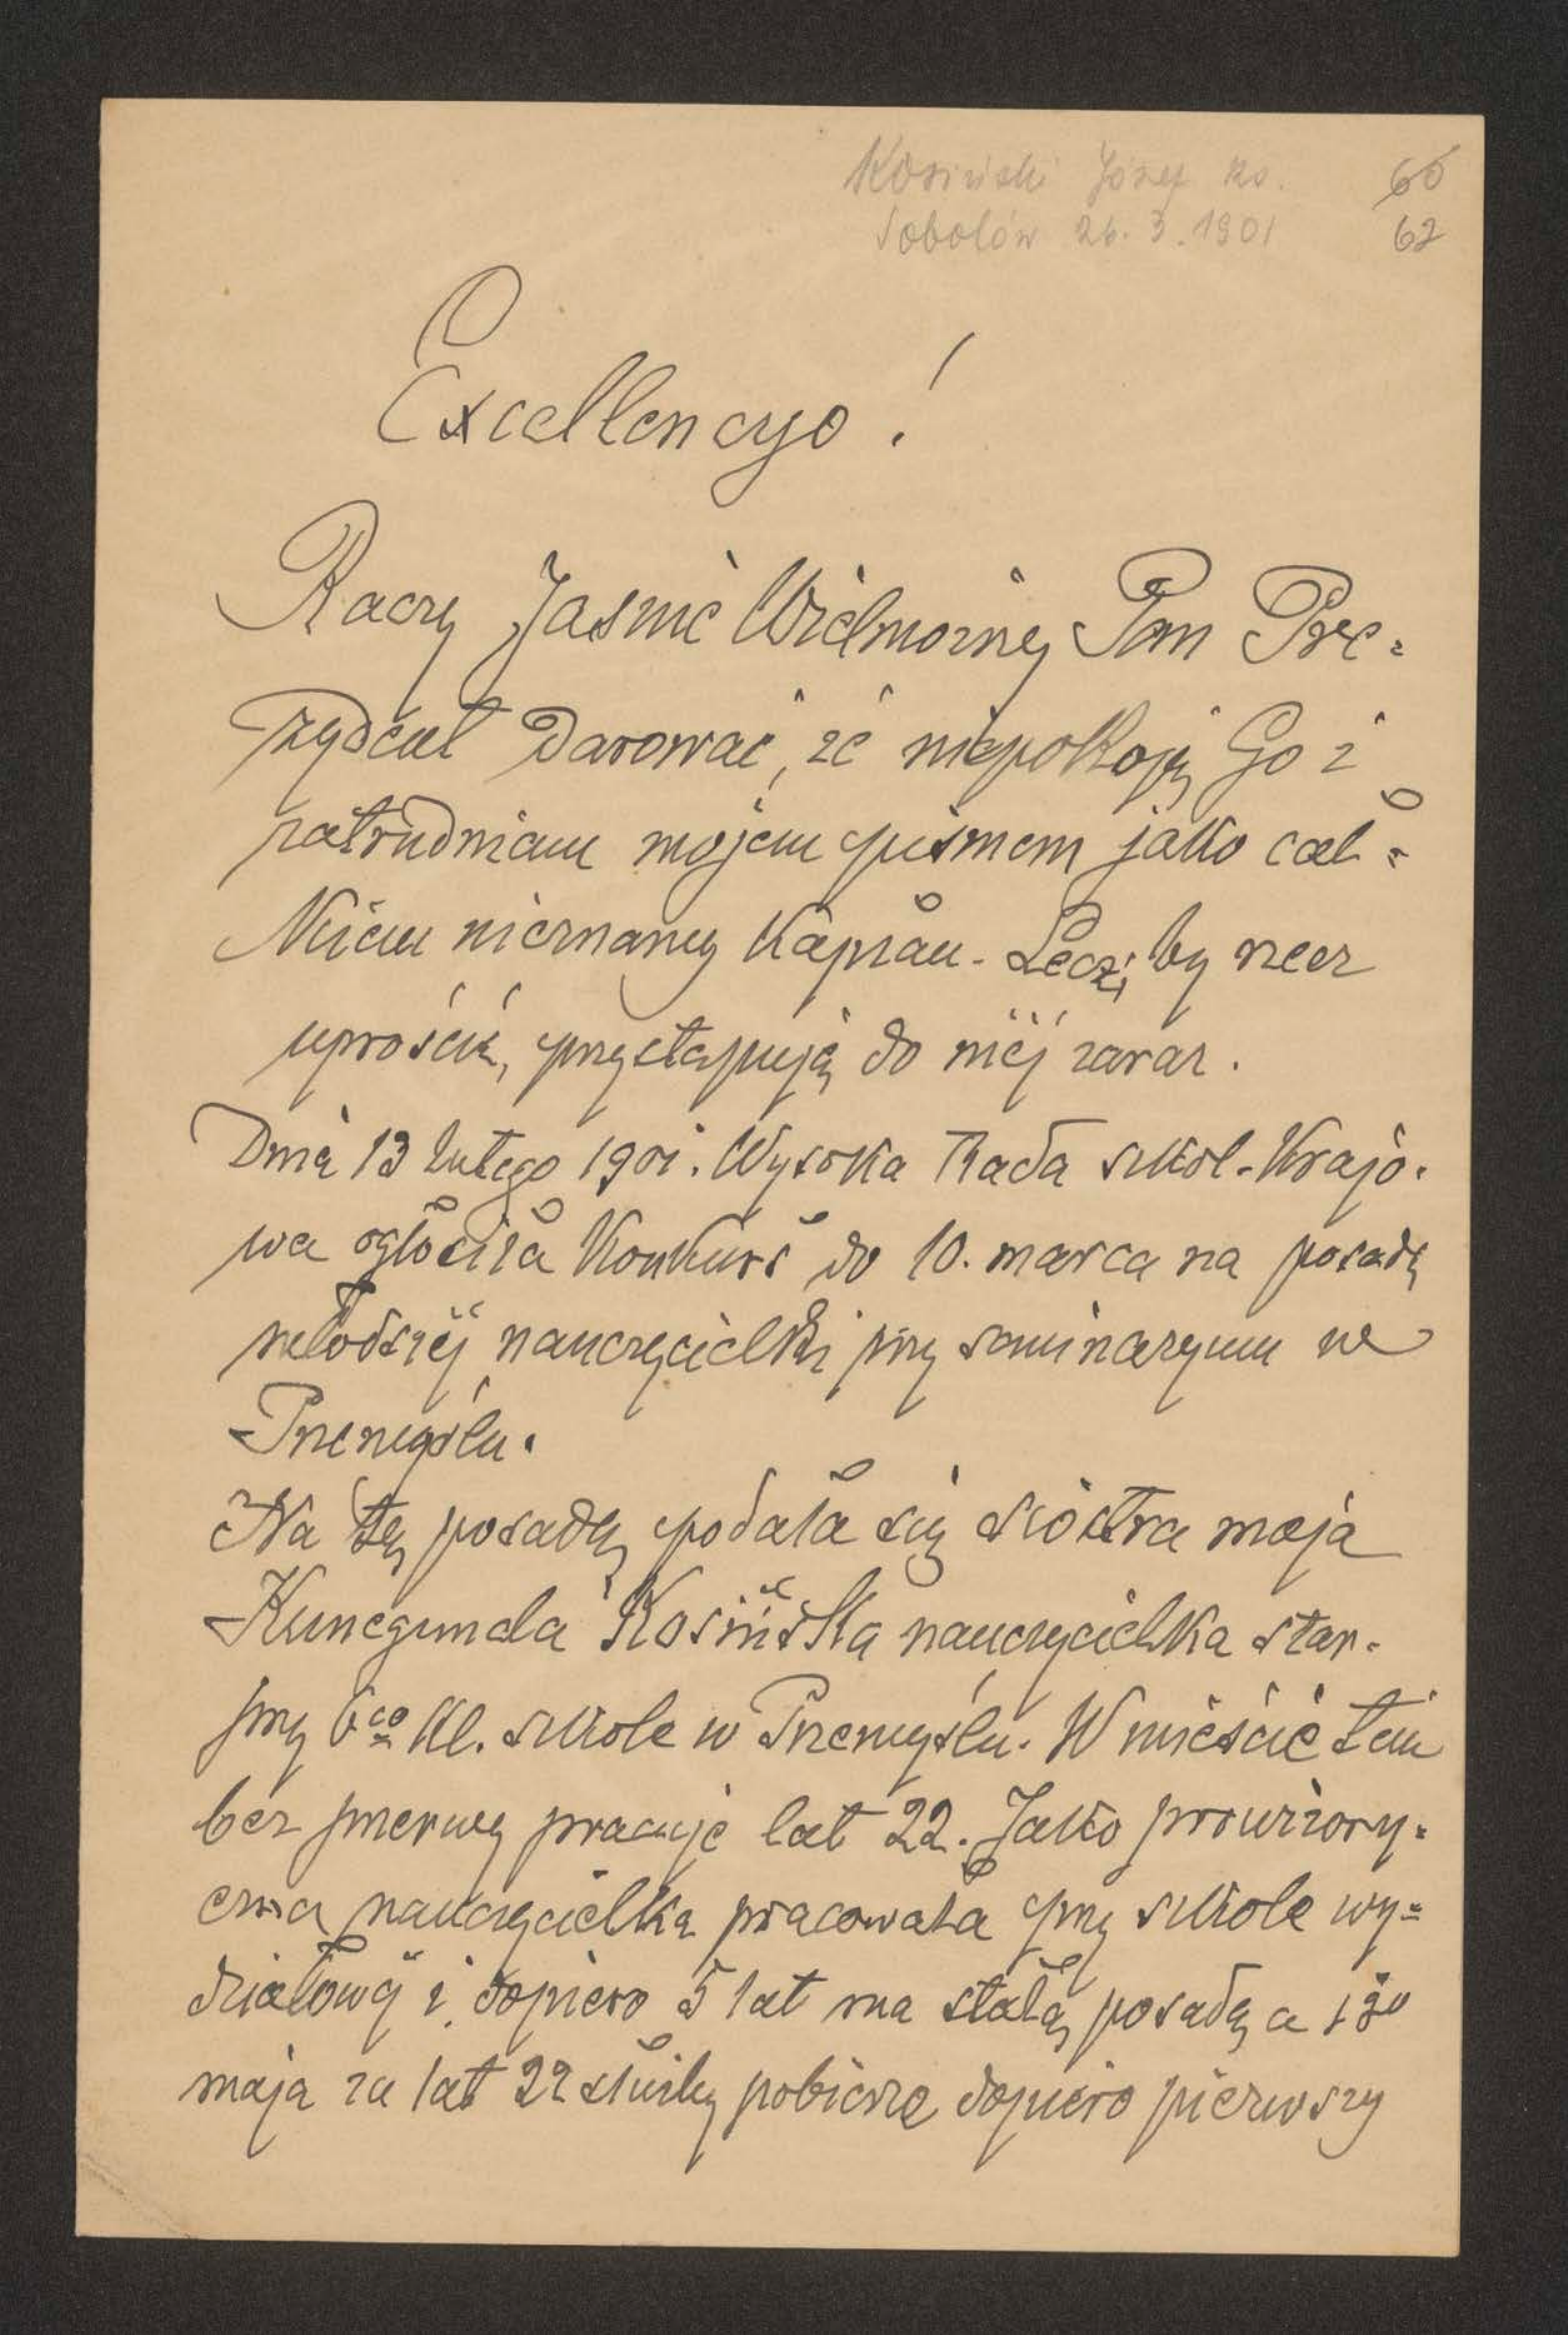 Kosiński Józef ks. 60
Sobolów 26. 3. 1901 62
Excellencyo!
Raczy Jaśnie Wielmożny Pan Pre-
zydent darować, że niepokoję Go i
zatrudniam mojem pismem jako cał-
kiem nieznany kapłan. Lecz, by rzecz
uprościć, przystępuję do niéj zaraz.
Dnia 13 lutego 1901. Wysoka Rada szkol. krajo-
wa ogłosiła konkurs do 10. marca na posadę
młodszéj nauczycielki przy seminaryum w
Przemyślu.
Na tę posadę podała się siostra moja
Kunegunda Kosińska nauczycielka star.
przy 6co kl. szkole w Przemyślu. W mieście tem
bez przerwy pracuje lat 22. Jako prowizory-
czna nauczycielka pracowała przy szkole wy-
działowéj i dopiero 5 lat ma stałą posadę a 1go
maja za lat 22 służby pobierze dopiero pierwszy